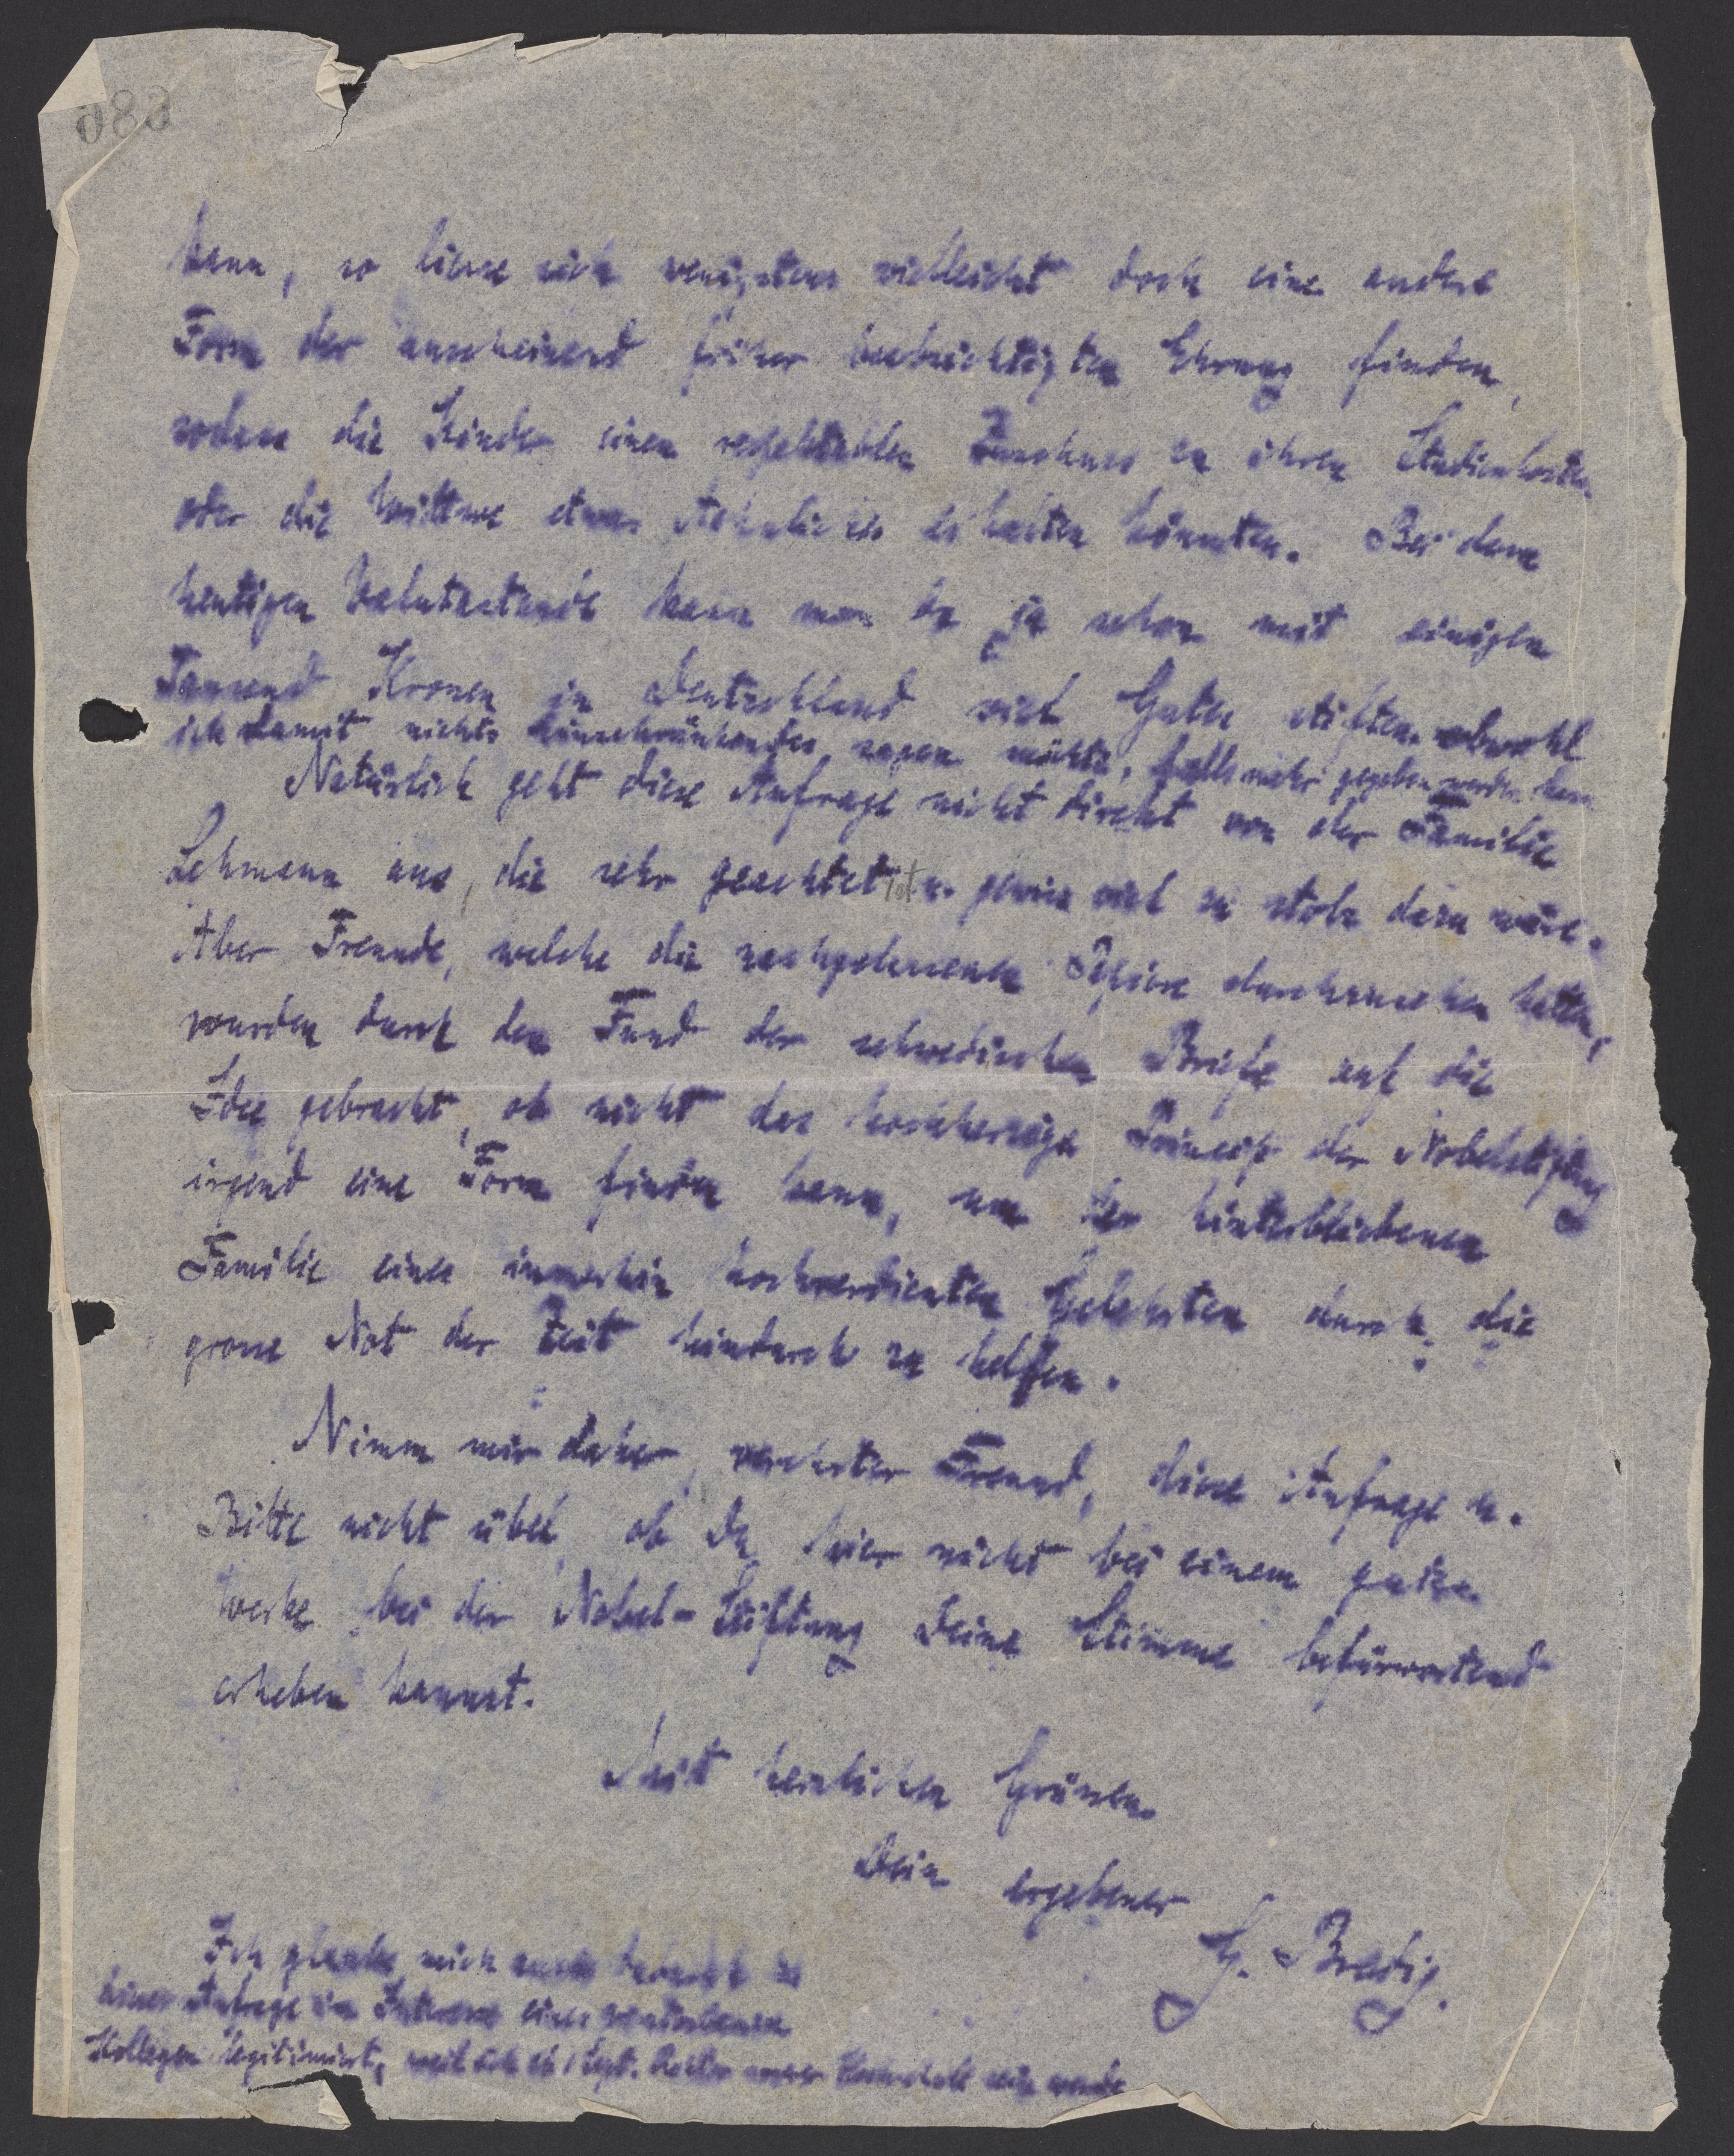 680
kann, so liesse sich wenigstens vielleicht doch eine andere
Form der anscheinend früher beabsichtigten Ehrung finden,
sodass die Kinder einen Zuschuss zu ihren Studienkosten
oder die Wittwe etwas Aehnliches erhalten könnten. Bei dem
heutigen Valutastande kann man da ja schon mit einigen
Tausend Kronen in Deutschland viel Gutes stiften, obwohl
ich damit nichts Einschränkendes sagen möchte, falls mehr gegeben werden kann.
Natürlich geht diese Anfrage nicht direkt von der Familie
Lehmann aus, die sehr geachtet ist u. gewiss viel zu stolz dazu wäre.
Aber Freunde, welche die nachgelassenen Papiere durchzusehen hatten,
wurden durch den Fund der schwedischen Briefe auf die
Idee gebracht, ob nicht das hochherzige Princip der Nobelstiftung
irgend eine Form finden kann, um der hinterbliebenen
Familie eines immerhin hochverdienten Gelehrten durch die
grosse Not der Zeit hindurch zu helfen.
Nimm mir daher, verehrter Freund, diese Anfrage u.
Bitte nicht übel, ob Du hier nicht bei einem guten
Werke bei der Nobel-Stiftung Deine Stimme befürwortend
erheben kannst.
Mit herzlichen Grüssen
Dein ergebener
G. Bredig.
Ich glaube mich zu
dieser Anfrage im Interesse eines verstorbenen
Kollegen legitimirt, weil ich ab 1 Sept. Rektor unserer Hochschule sein werde